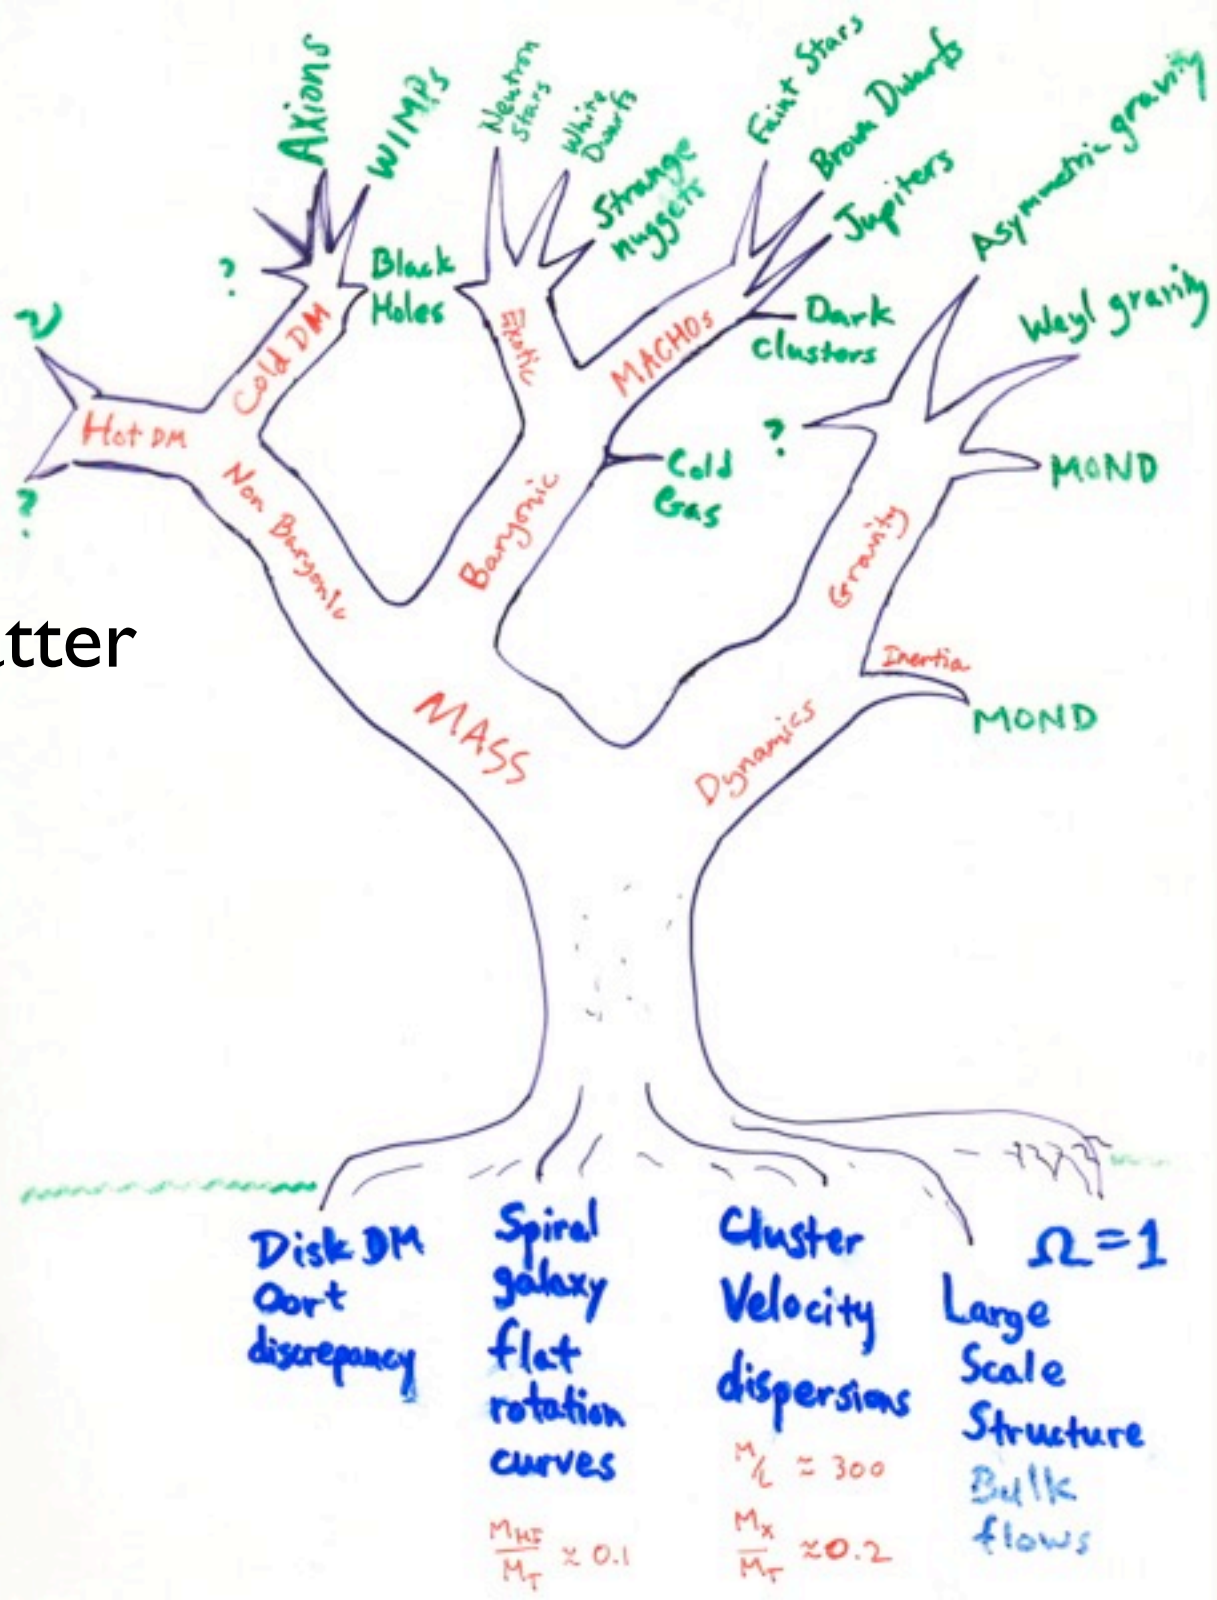 Axions
WIMPs
Neutron
Stars
White
Dwarfs
Strange
nuggets
Faint Stars
Brown Dwarfs
Jupiters
Asymmetric gravity
Weyl gravity
?
Black
Holes
Cold DM
Exotic
MACHOs
Dark
clusters
ν
Hot DM
?
?
Cold
Gas
MOND
Non Baryonic
Baryonic
Gravity
tter
Inertia
MOND
MASS
Dynamics
Disk DM
Oort
discrepancy
Spiral
galaxy
flat
rotation
curves
M_HI/M_T ≈ 0.1
Cluster
Velocity
dispersions
M/L ≈ 300
M_X/M_T ≈ 0.2
Ω = 1
Large
Scale
Structure
Bulk
flows